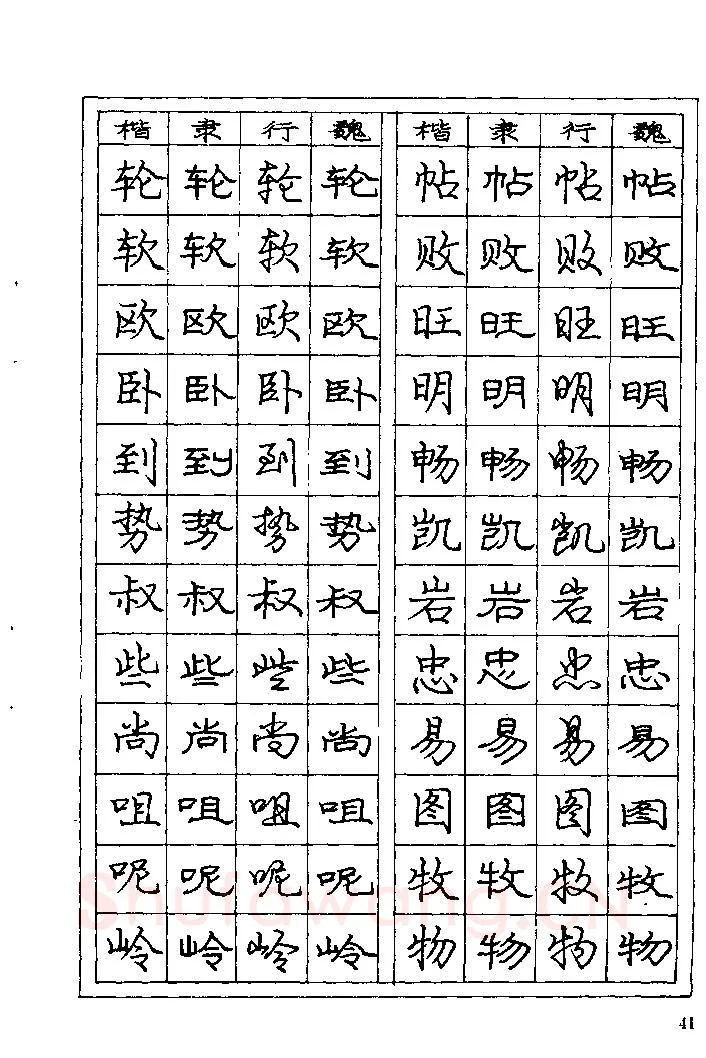 楷 隶 行 魏 楷 隶 行 魏
轮 轮 轮 轮 帖 帖 帖 帖
软 软 软 软 败 败 败 败
欧 欧 欧 欧 旺 旺 旺 旺
卧 卧 卧 卧 明 明 明 明
到 到 到 到 畅 畅 畅 畅
势 势 势 势 凯 凯 凯 凯
叔 叔 叔 叔 岩 岩 岩 岩
些 些 些 些 忠 忠 忠 忠
尚 尚 尚 尚 易 易 易 易
咀 咀 咀 咀 图 图 图 图
呢 呢 呢 呢 牧 牧 牧 牧
Shufawang.CN
岭 岭 岭 岭 物 物 物 物
41